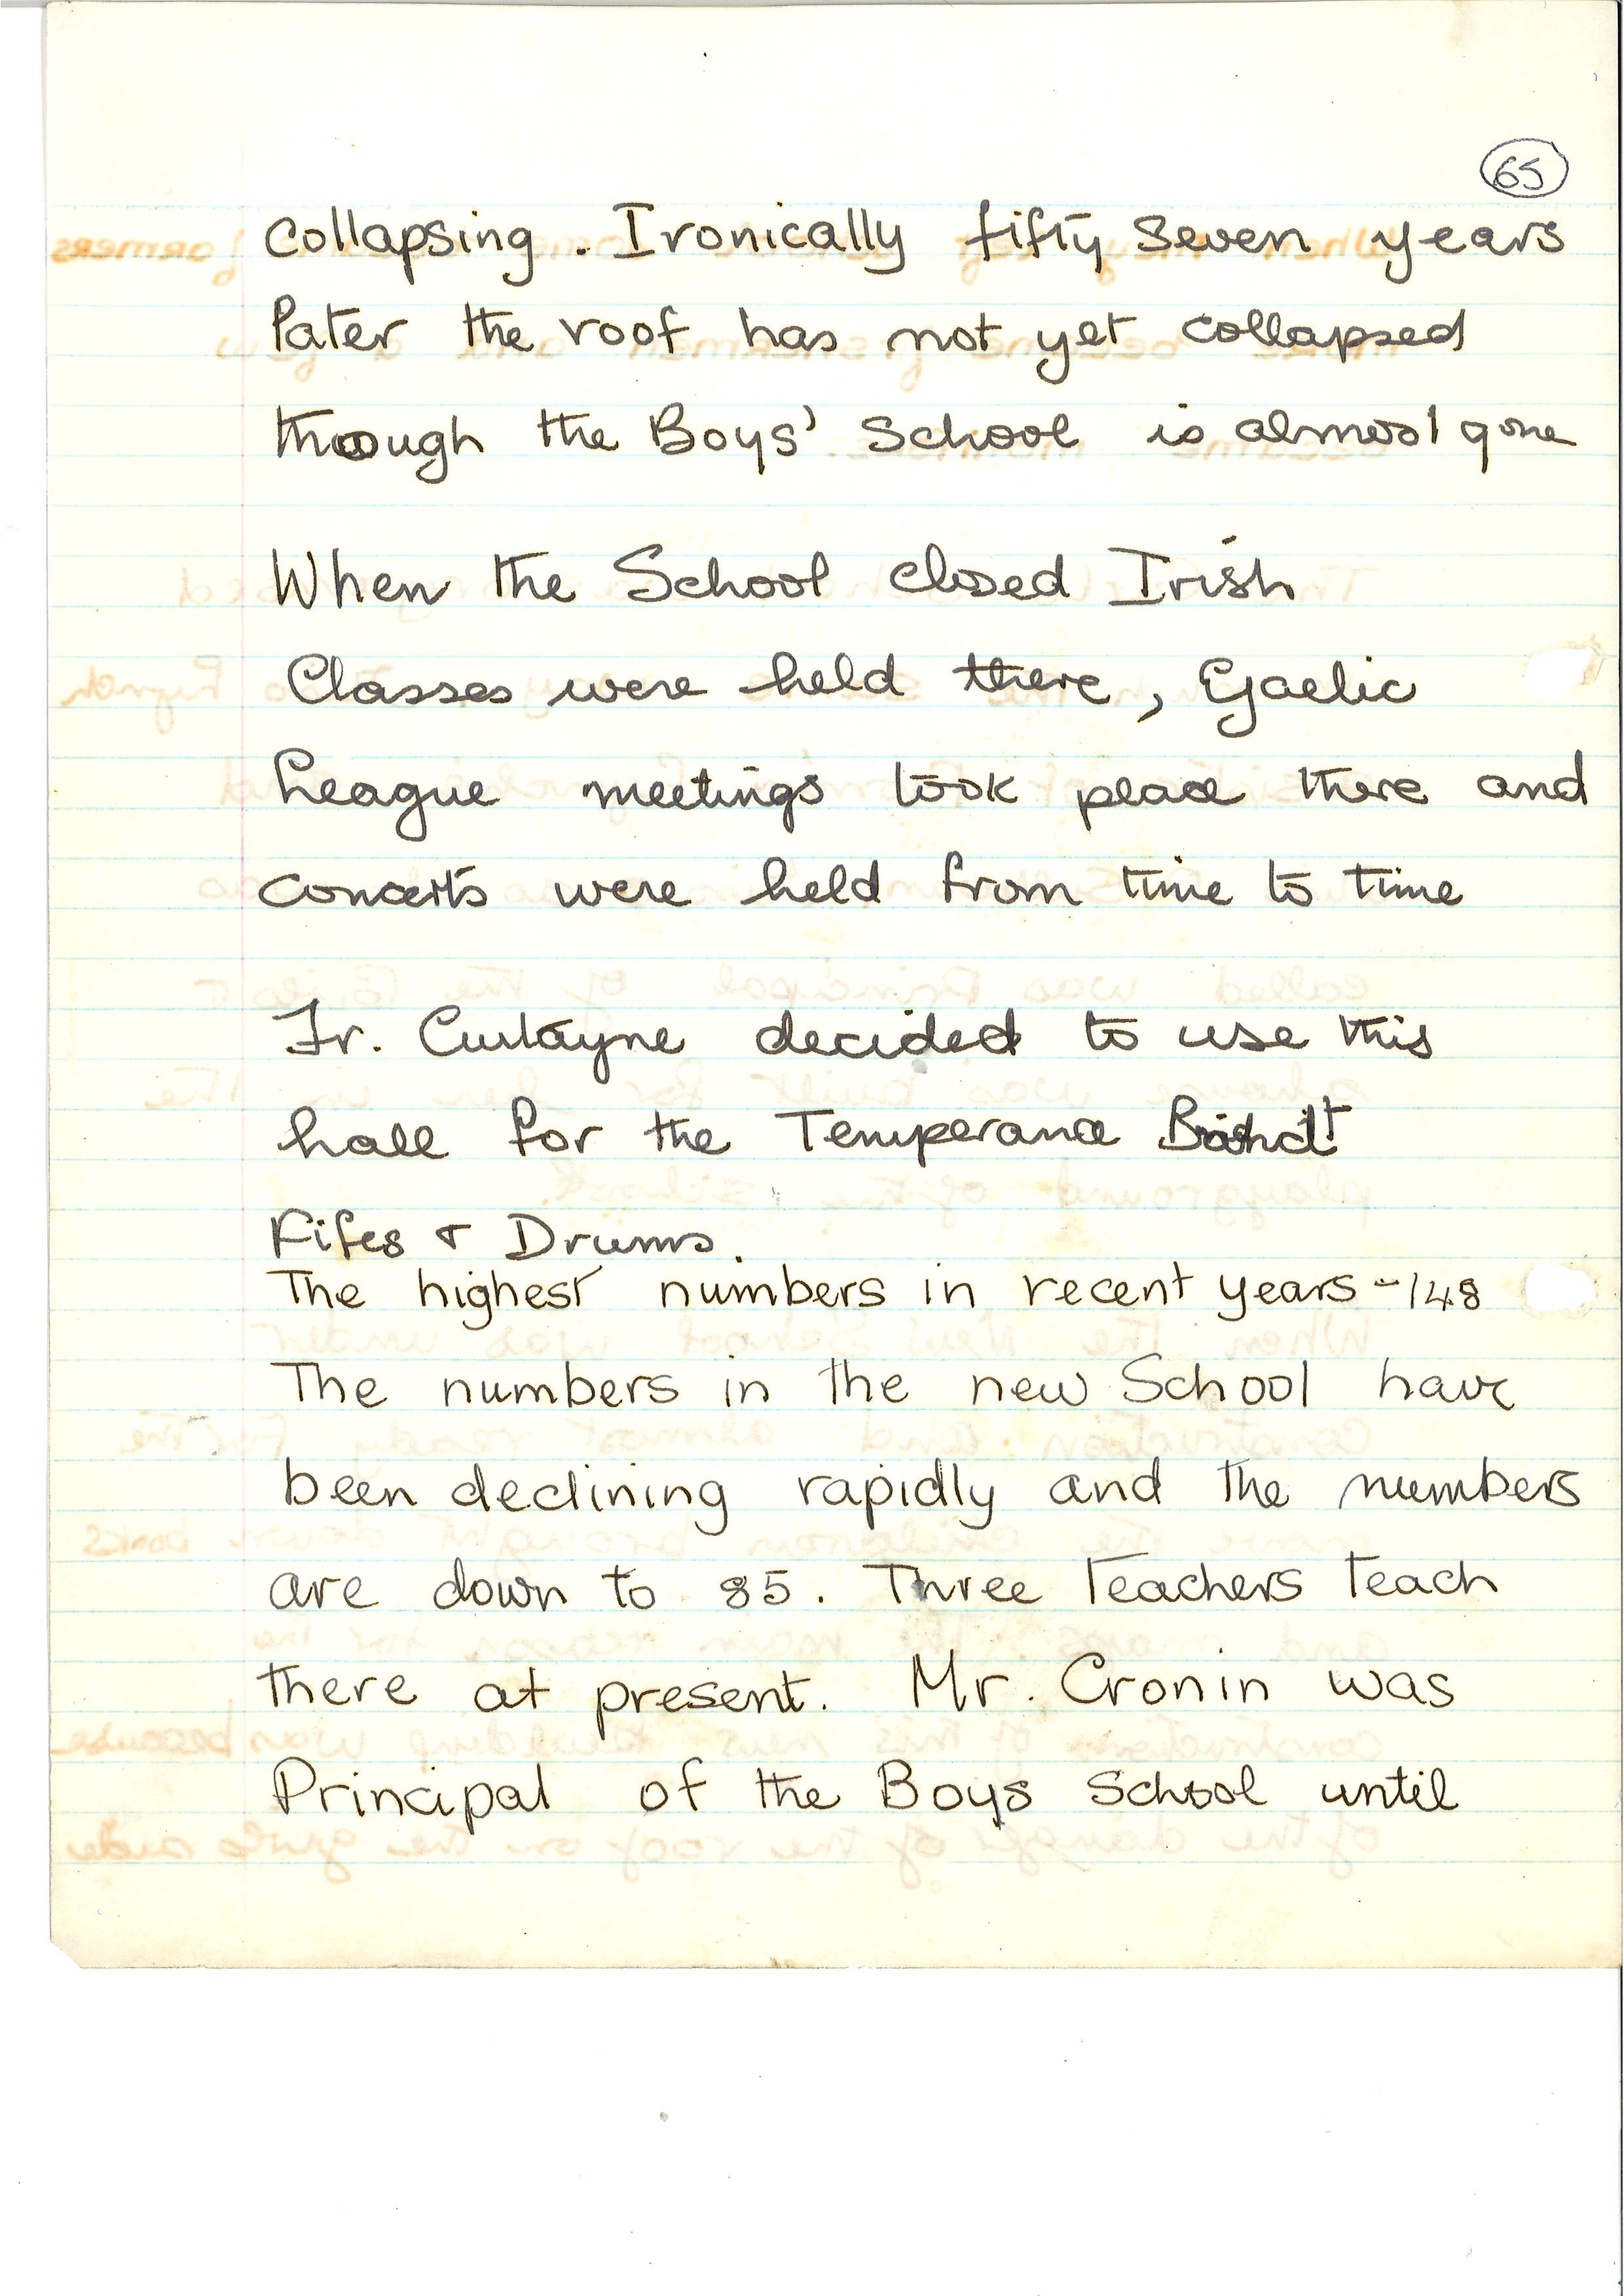 65
Collapsing. Ironically fifty seven years
later the roof has not yet collapsed
though the Boys' School is almost gone
When the School closed Irish
Classes were held there, Gaelic
League meetings took place there and
concerts were held from time to time
Fr. Curtayne decided to use this
hall for the Temperance
Fifes & Drums.
The highest numbers in recent years - 148
The numbers in the new School have
been declining rapidly and the numbers
are down to 85. Three Teachers teach
there at present. Mr. Cronin was
Principal of the Boys School until